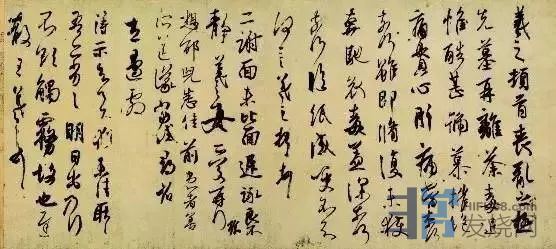 羲之頓首喪亂之極
先墓再離荼毒追
惟酷甚號慕摧絕
痛貫心肝痛當奈何
奈何雖即脩復未獲
奔馳哀毒益深奈何
奈何臨紙感哽不知
何言羲之頓首
二謝面未比面遲詠良
靜羲之女愛再拜
想邵兒悉佳前患者善
所送議當試尋省
左邊劇
得示知足下猶未佳耿耿
吾亦劣劣明日出乃行
不欲觸霧故也遲
散王羲之頓首
发烧网